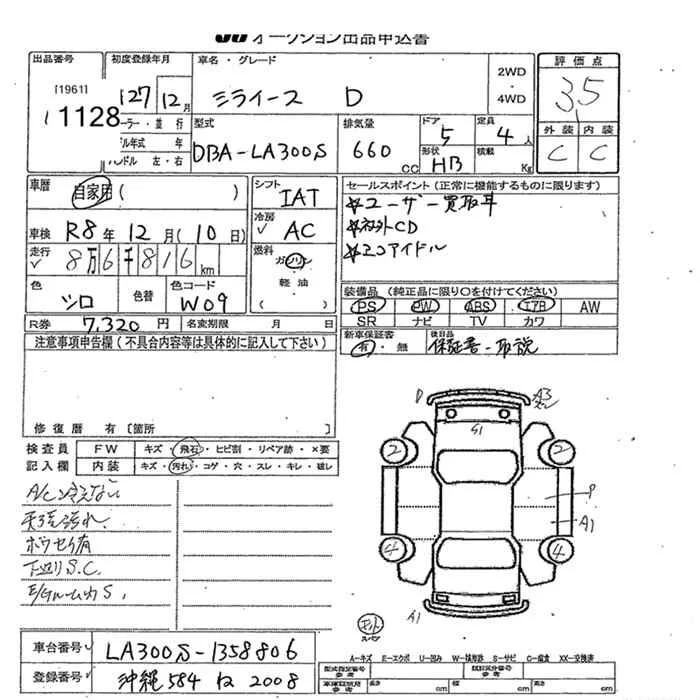 JU オークション出品申込書
出品番号
[1961]
1128
初度登録年月
27 12月
車名・グレード
ミライース D
2WD
4WD
評価点
3.5
外装 内装
C C
カラー・並行
モデル年式 年
ハンドル 左・右
型式
DBA-LA300S
排気量
660 cc
ドア 5
形状 HB
定員 4人
積載 Kg
車歴 自家用( )
車検 R8年12月(10日)
走行 8万6千816km
色 シロ
色替
色コード W09
シフト IAT
冷房 AC
燃料 ガソリン
軽油
セールスポイント(正常に機能するものに限ります)
☆ユーザー買取車
☆社外CD
☆エコアイドル
装備品(純正品に限り○を付けてください)
PS PW ABS エアB AW
SR ナビ TV カワ
R券 7,320円
名変期限 月 日
新車保証書
有・無
後日品
保証書-取説
注意事項申告欄(不具合内容等は具体的に記入して下さい)
修復歴 有 [箇所 ]
検査員
記入欄
FW キズ・飛石・ヒビ割・リペア跡・×要
内装 キズ・汚れ・コゲ・穴・スレ・キレ・破レ
A/C冷えない
天張汚れ
ボウセイ有
下廻りS.C.
D
A3
S1
2 2
P
A1
4 4
A1
スペア
車台番号 LA300S-1358806
登録番号 沖縄 584 は 2008
A-キズ E-エクボ U-凹み W-板跡 S-サビ C-腐食 XX-交換済
型式指定番号
類別区分番号
長さ cm
幅 cm
高さ cm